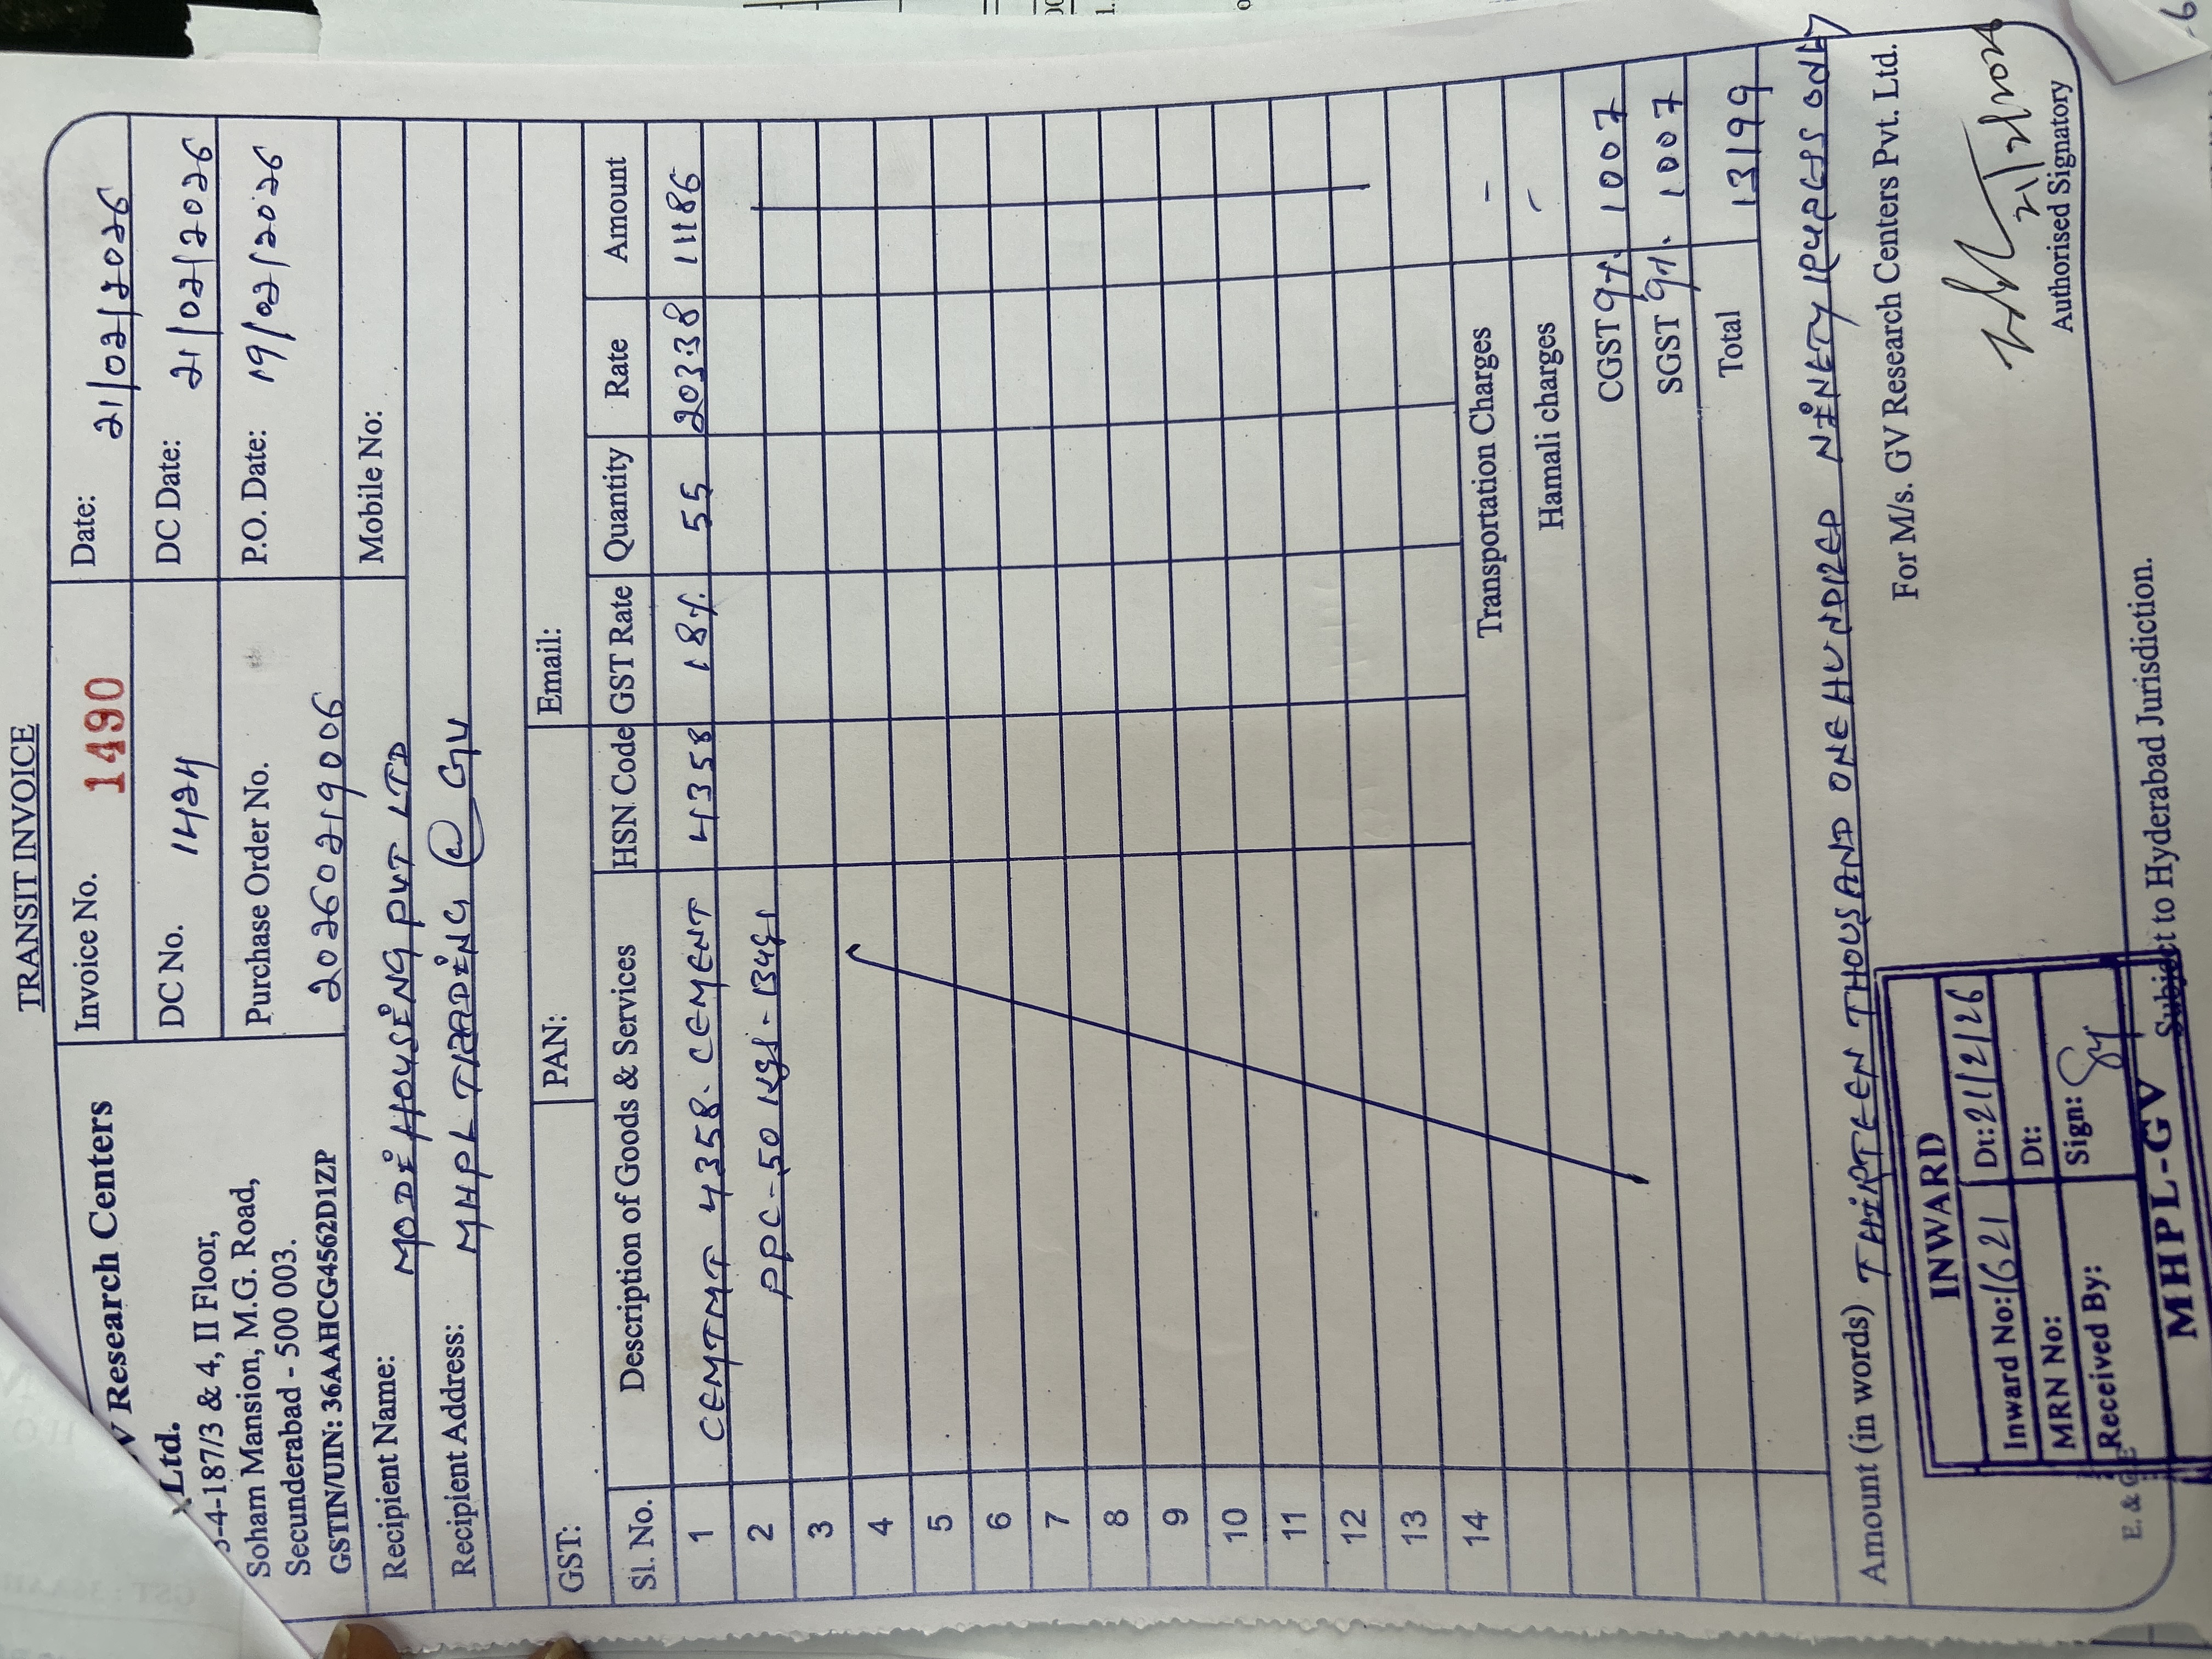 TRANSIT INVOICE
V Research Centers
Ltd.
-4-187/3 & 4, II Floor,
Soham Mansion, M.G. Road,
Secunderabad - 500 003.
GSTIN/UIN: 36AAHCG4562D1ZP
Invoice No. 1490 Date: 21/02/2026
DC No. 1424 DC Date: 21/02/2026
Purchase Order No. P.O. Date: 19/02/2026
20260219006
Recipient Name: MODI HOUSING PVT LTD Mobile No:
Recipient Address: MHPL TRADING @ GV
GST: PAN: Email:
Sl. No. Description of Goods & Services HSN Code GST Rate Quantity Rate Amount
1 CEMTMT 4358. CEMENT 4358 18% 55 203.38 11186
2 PPC-50 Kgs-
3
4
5
6
7
8
9
10
11
12
13
14
Transportation Charges -
Hamali charges -
CGST 9%. 1007
SGST 9%. 1007
Total 13199
Amount (in words) THIRTEEN THOUSAND ONE HUNDRED NINETY RUPEES ONLY
For M/s. GV Research Centers Pvt. Ltd.
21/2/2026
Authorised Signatory
INWARD
Inward No: 1621 Dt: 21/2/26
MRN No: Dt:
Received By: Sign:
MHPL-GV
E. & O.E
Subject to Hyderabad Jurisdiction.